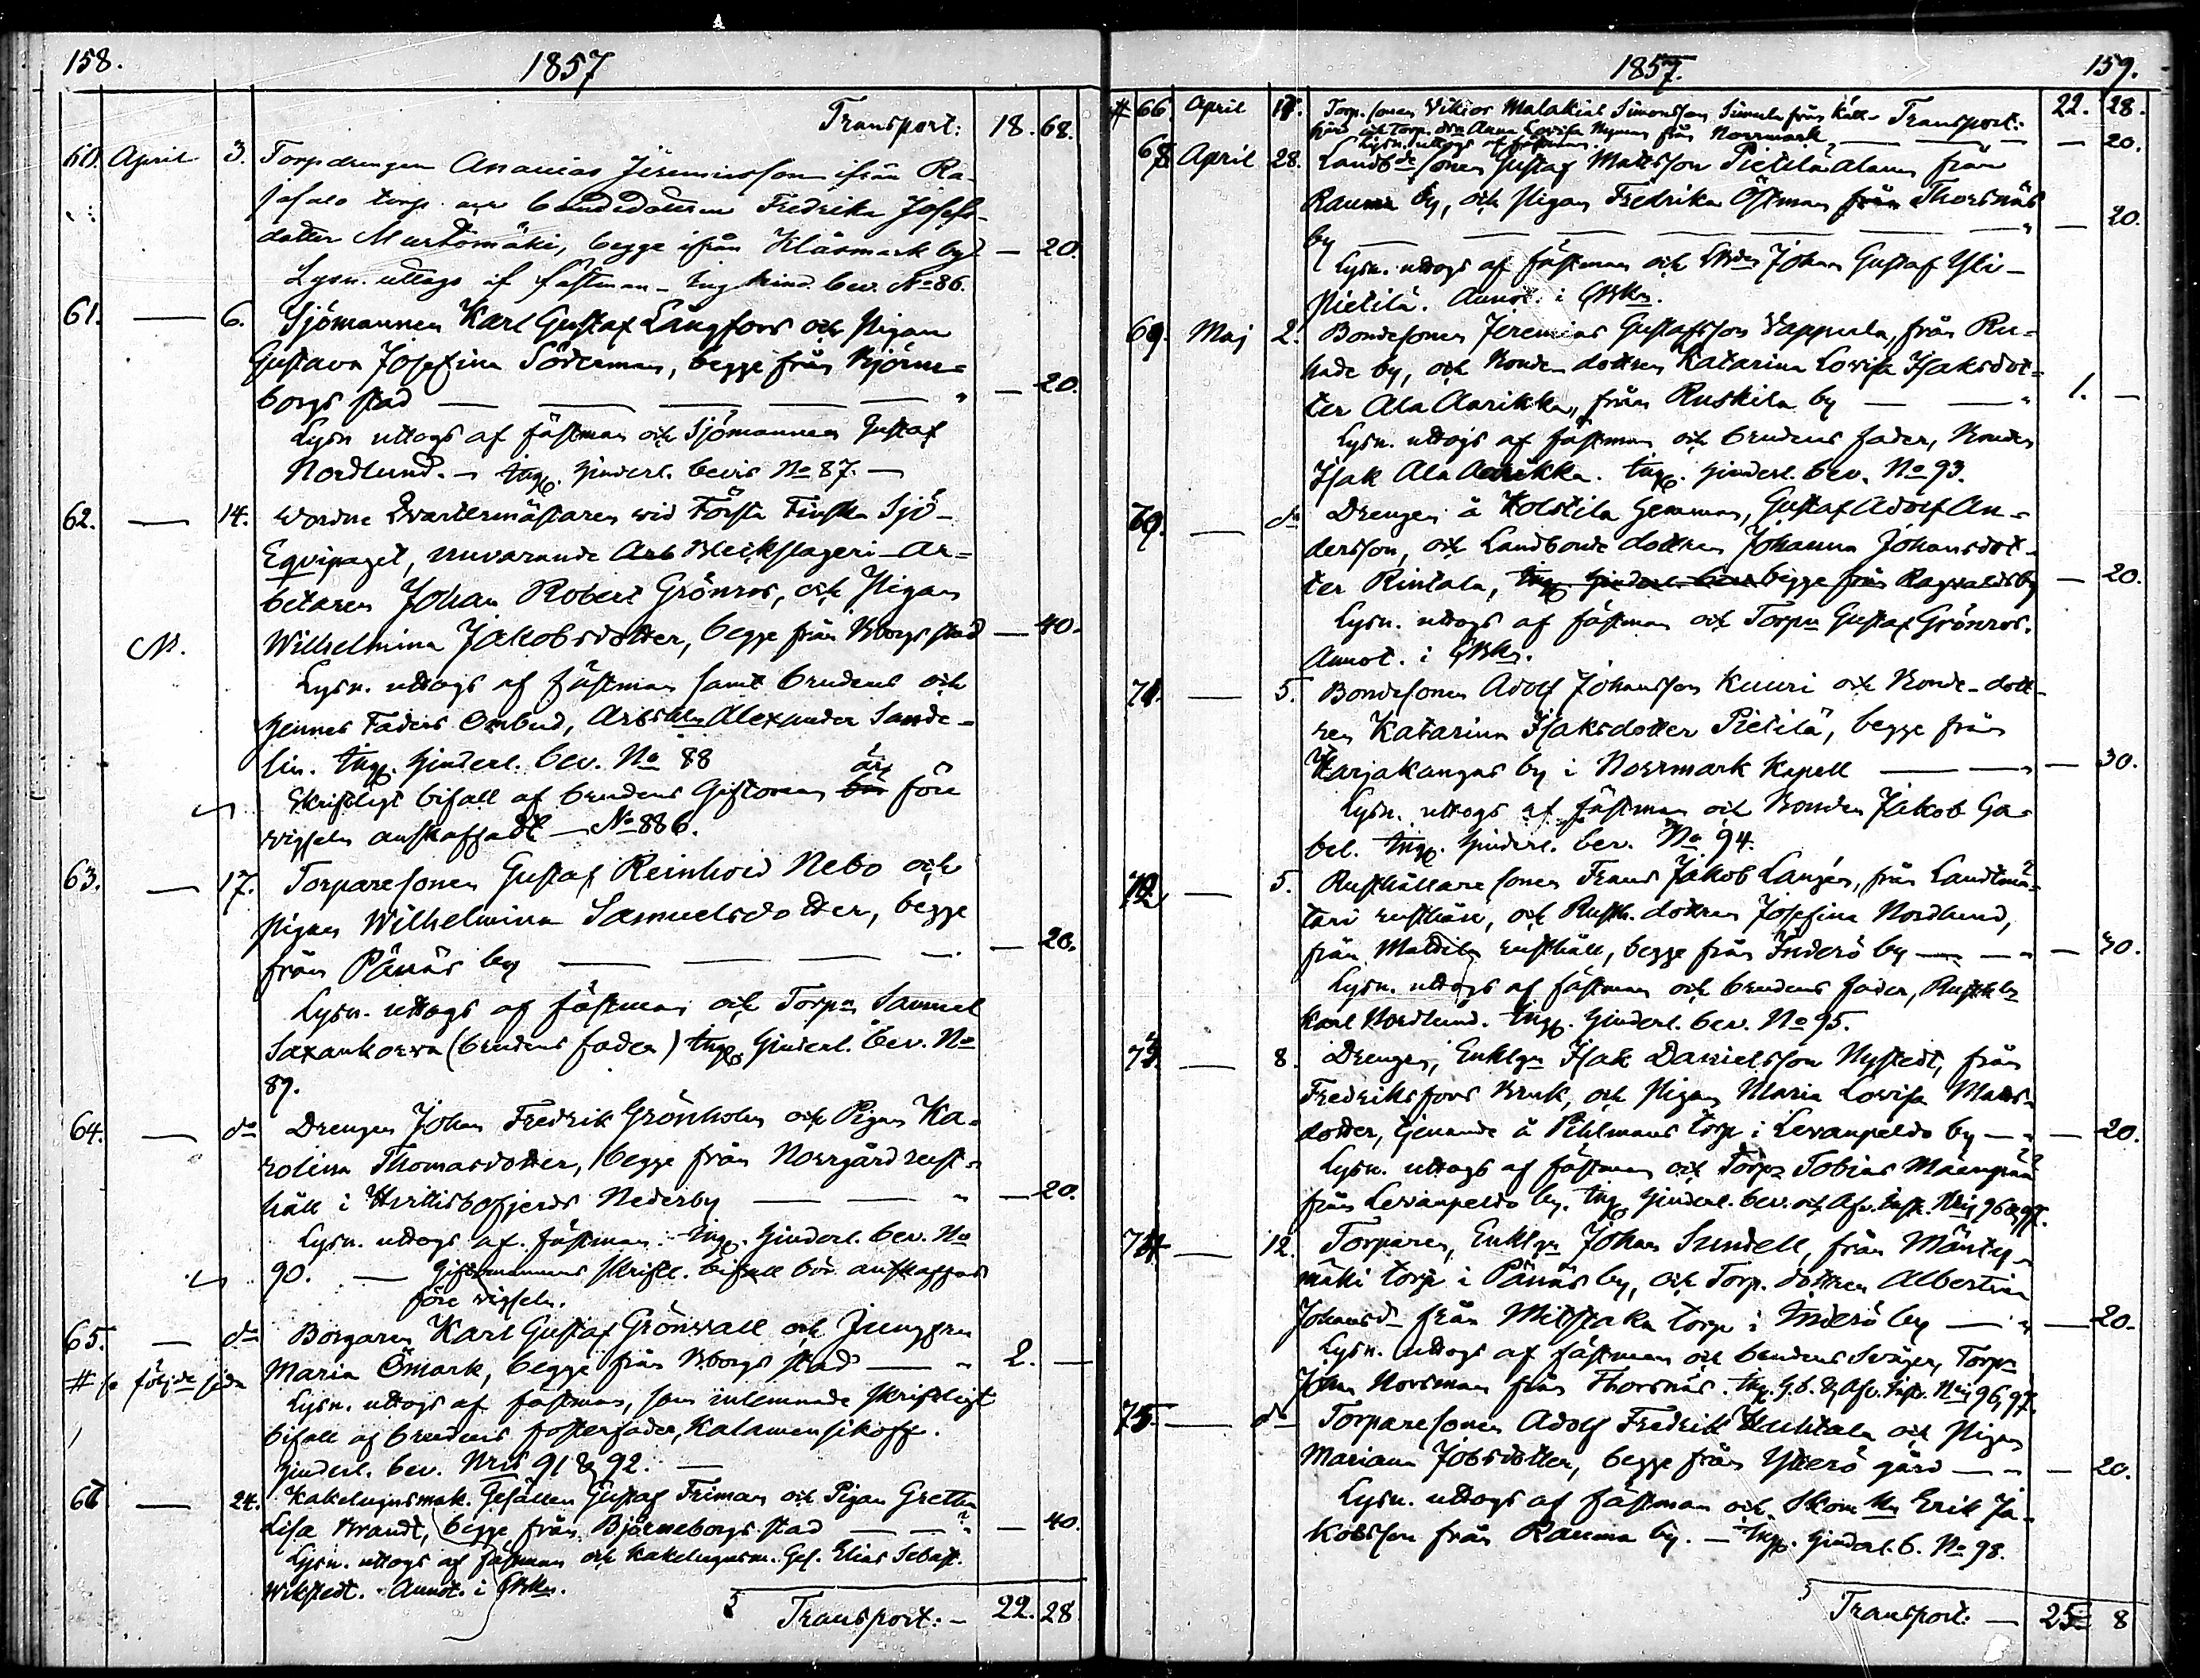 158.
1857
Transport: 18. 68.
60. April 3. Torpdrengen Ananias Jeremiasson ifrån Ra-
torp och Bondedottren Fredrika Josefs-
dotter Murtomäki, begge ifrån Klåsmark by — 20.
Lysn. uttogs af fästman - Ing. hind. bev. No 86.
61. — 6. Sjömannen Karl Gustaf Långfors och Pigan
Gustava Josefina Söderman, begge från Björne-
borgs stad — — — — — " — 20.
Lysn uttogs af fästman och Sjömannen Gustaf
Nordlund. — Ing. hinderl. bevis No 87. —
62. — 14. vordne Qvartermästaren vid Första Finska Sjö-
Eqvipaget, nuvarande Arb Bleckslageri-Ar-
betaren Johan Robert Grönros, och Pigan
Wilhelmina Jakobsdotter, begge från Bborgs stad — 40.
Lysn. uttogs af fästman samt brudens och
hennes Faders Ombud, Arbskln Alexander Sande-
lin. Ing. hinderl. bev. No 88
är
Skriftligt bifall af brudens Giftoman bör före
vigseln anskaffadt — No 886.
63. — 17. Torparesonen Gustaf Reinhold Nebo och
Pigan Wilhelmina Samuelsdotter, begge
från Pänäs by — — — — — 20.
Lysn. uttogs af fästman och Torpn Samuel
Saxankorva (brudens fader) Ing. hinderl. bev. No
89.
64. — do Drengen Johan Fredrik Grönholm och Pigan Ka-
rolina Thomasdotter, begge från Norrgård rust-
håll i Hvittisbofjerds Nederby — — " — 20.
Lysn. uttogs af fästman. Ing. hinderl. bev. No
90. — Giftomannens skriftl. bifall bör anskaffas
före vigseln.
65. — do Borgaren Karl Gustaf Grönvall och Jungfru
Maria Ömark, begge från Bborgs stad — " 2. —
# se följde sida
Lysn. uttogs af fästman, som inlemnade skriftligt
bifall af brudens fosterfader, Kalamensikoff.
hinderl. bev. Nris 91 & 92. —
67 — 24. Kakelugnsmak. Gesällen Gustaf Friman och Pigan Gretha
Lisa Brandt, begge från Björneborgs stad — — " — 40.
Lysn. uttogs af fästman och Kakelugnsm. Ges. Elias Sebast.
Wikstedt. Annot. i
Transport: — 22. 28
1857.
159.
# 66. April 18. Torp. sonen Viktor Malakias Simonsson Simula från Käll- Transport: 22. 28.
fjärd och Torp. drn Anna Lovisa Nyman från Norrmark — — — 20.
Lysn. uttogs af fästman.
68 April 28. Landbde sonen Gustaf Mattsson Pietilä Alanen från
Rauma by, och Pigan Fredrika Östman från Thorsnäs
by — — — — — — " — 20.
Lysn. uttogs af fästman och Johan Gustaf Yli-
Pietilä. Annot. i
69. Maj 2. Bondesonen Jeremias Gustafsson Vappula, från Ru-
hade by, och Bonde dottren Katarina Lovisa Isaksdot-
ter Ala Aarikka, från Ruskila by — — " 1. —
Lysn. uttogs af fästman och brudens fader, Bonden
Isak Ala Aarikka. Ing. hinderl. bev. No 93.
70. — do Drengen å Kolstila hemman, Gustaf Adolf An-
dersson, och Landbonde dottren Johanna Johansdot-
ter Rintala, Ing. hinderl. bevis begge från Ragvaldsby — 20.
Lysn. uttogs af fästman och Torpn Gustaf Grönros.
Annot. i
71. — 5. Bondesonen Adolf Johansson Kuuri och Bonde-dott-
ren Katarina Isaksdotter Pietilä, begge från
Karjakangas by i Norrmark Kapell — — " — 30.
Lysn. uttogs af fästman och Bonden Jakob Ga-
bel. Ing. hinderl. bev. No 94.
72 — 5. Rusthållare sonen Frans Jakob Langén, från Landtmä-
tari rusthåll, och Rusth. dottren Josefina Nordlund,
från Mattila rusthåll, begge från Inderö by — — " — 30.
Lysn. uttogs af fästman och brudens fader, Rusthln
Karl Nordlund. Ing. hinderl. bev. No 95.
73. — 8. Drengen, Enklgn Isak Danielsson Nystedt, från
Fredriksfors Bruk, och Pigan Maria Lovisa Matts-
dotter, tjenande å Pihlmans torp i Levanpeldo by — " — 20.
Lysn. uttogs af fästman och Torpn Tobias Mäenpää
från Levanpeldo by. Ing. hinderl. bev. och Afv. inst. Nris 96 & 97.
74 — 12. Torparen, Enklgn Johan Sundell, från Mänty-
mäki torp i Pänäs by, och Torp. dottren Albertina
Johansd. från Mitstaka torp i Inderö by — " — 20.
Lysn. uttogs af fästman och brudens Svåger, Torpn
Johan Norrman från Thorsnäs. Ing. h. b. & Afv. inst. Nris 96, 97.
75. — do Torparesonen Adolf Fredrik Huhtala och Pigan
Mariana Jobsdotter, begge från Ytterö gård — " — 20.
Lysn. uttogs af fästman och Skom. Erik Ja-
kobsson från Rauma by. — Ing. hinderl. b. No 98.
Transport: — 25 8